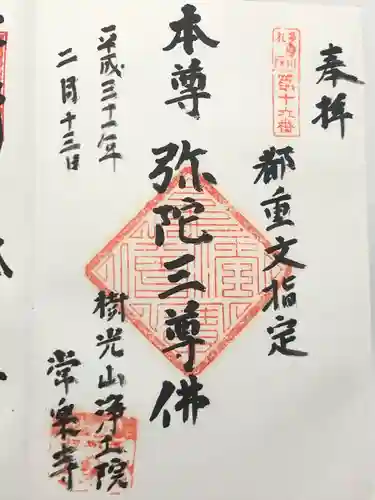 奉拝
都重文指定
本尊 弥陀三尊佛
樹光山浄土院
常泉寺
平成三十一年
二月十三日